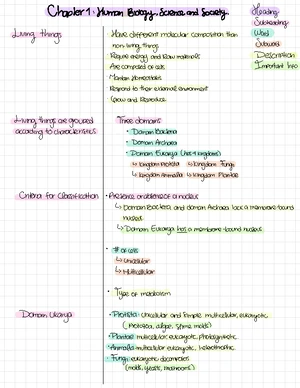 Chapter 1: Human Biology, Science and Society
Heading
Subheading
Word
Subword
Description
Important Info
Living things
Have different molecular composition than
non-living things
Require energy and Raw materials
Are composed of cells
Maintain Homeostasis
Respond to their external environment
Grow and Reproduce
Living things are grouped
according to characteristics
Three domains
• Domain Bacteria
• Domain Archaea
• Domain Eukarya (has 4 kingdoms)
↳ Kingdom Protista ↳ Kingdom Fungi
↳ Kingdom Animalia ↳ Kingdom Plantae
Criteria for Classification
• Presence or absence of a nucleus
↳ Domain Bacteria and domain Archaea lack a membrane-bound
nucleus
↳ Domain Eukarya has a membrane-bound nucleus
• # of cells
↳ Unicellular
↳ Multicellular
• Type of metabolism
Domain Ukarya
• Protista: Unicellular and simple multicellular, eukaryotic
(Protozoa, algae, slime molds)
• Plantae: multicellular, eukaryotic, photosynthetic
• Animalia: multicellular, eukaryotic, heterotrophic
• Fungi: eukaryotic decomposers
(molds, yeasts, mushrooms)